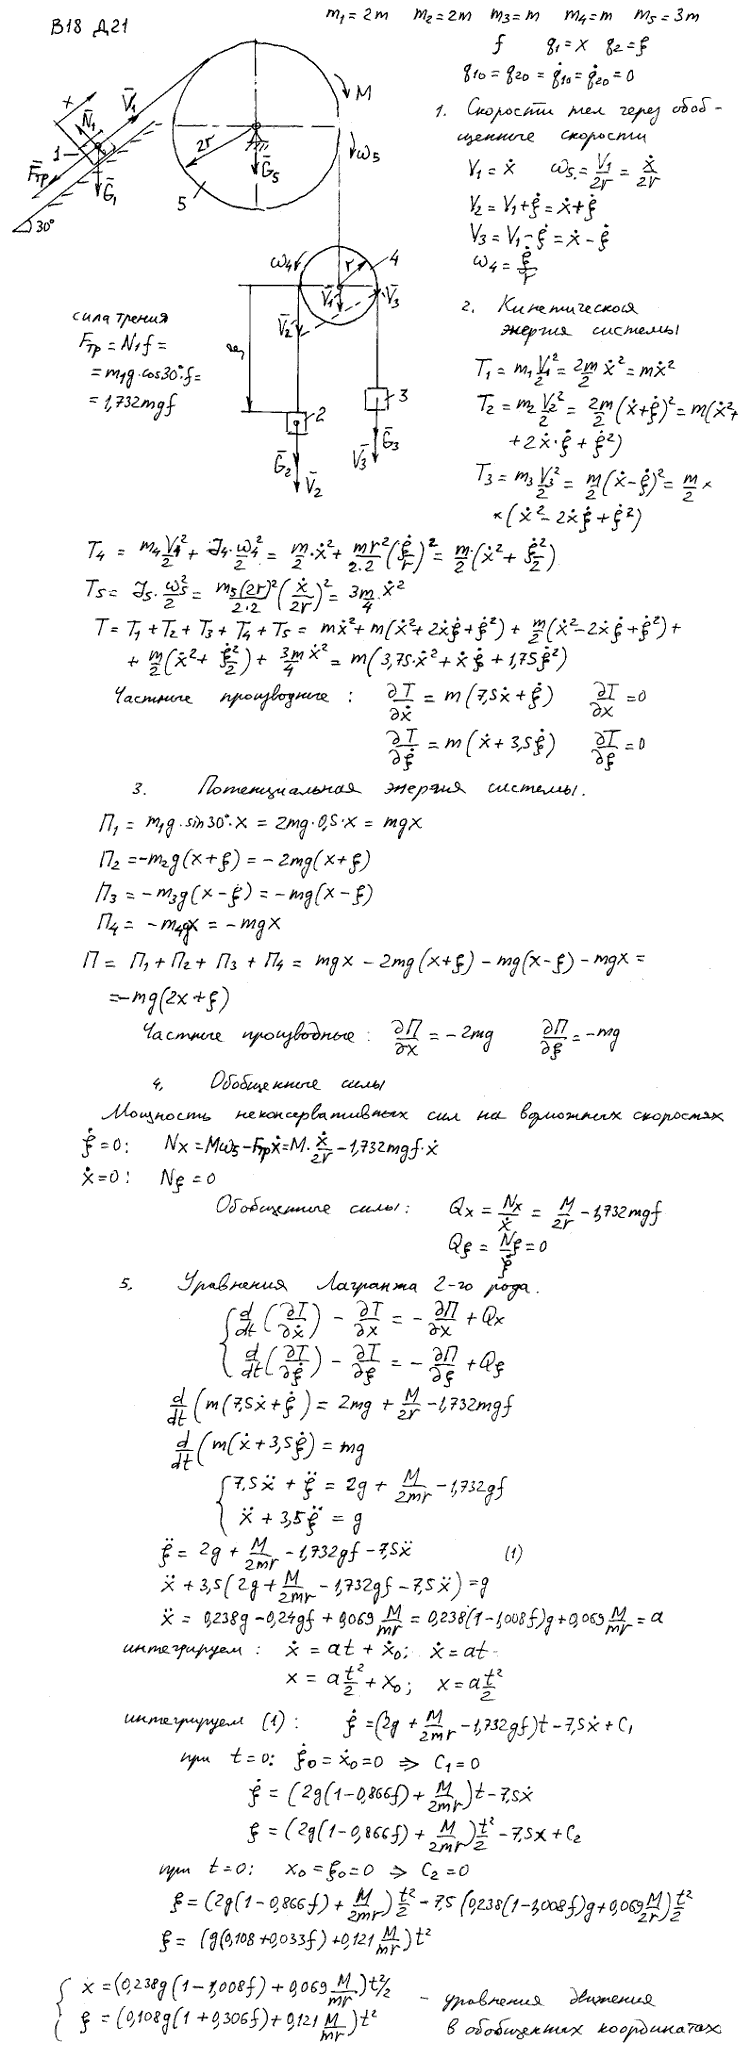 В18 Д21
m₁ = 2m m₂ = 2m m₃ = m m₄ = m m₅ = 3m
f q₁ = x q₂ = ξ
q₁₀ = q₂₀ = q̇₁₀ = q̇₂₀ = 0
1. Скорости тел через обоб-
щенные скорости
V₁ = ẋ ω₅ = V₁/2r = ẋ/2r
V₂ = V₁ + ξ̇ = ẋ + ξ̇
V₃ = V₁ - ξ̇ = ẋ - ξ̇
ω₄ = ξ̇/r
x N̄₁ V̄₁ 1 F̄тр Ḡ₁ 30°
2r Ḡ₅ 5 M ω₅
ω₄ r 4 V̄₁ V̄₃ V̄₂
2 3 Ḡ₂ V̄₂ V̄₃ Ḡ₃
сила трения
Fтр = N₁f =
= m₁g·cos30°·f =
= 1,732mgf
2. Кинетическая
энергия системы
T₁ = m₁V₁²/2 = 2m/2 ẋ² = mẋ²
T₂ = m₂V₂²/2 = 2m/2 (ẋ + ξ̇)² = m(ẋ² +
+ 2ẋ·ξ̇ + ξ̇²)
T₃ = m₃V₃²/2 = m/2 (ẋ - ξ̇)² = m/2 ×
× (ẋ² - 2ẋξ̇ + ξ̇²)
T₄ = m₄V₁²/2 + J₄·ω₄²/2 = m/2·ẋ² + mr²/2·2 (ξ̇/r)² = m/2·(ẋ² + ξ̇²/2)
T₅ = J₅·ω₅²/2 = m₅(2r)²/2·2 (ẋ/2r)² = 3m/4·ẋ²
T = T₁ + T₂ + T₃ + T₄ + T₅ = mẋ² + m(ẋ² + 2ẋξ̇ + ξ̇²) + m/2(ẋ² - 2ẋξ̇ + ξ̇²) +
+ m/2(ẋ² + ξ̇²/2) + 3m/4 ẋ² = m(3,75·ẋ² + ẋξ̇ + 1,75ξ̇²)
Частные производные: ∂T/∂ẋ = m(7,5ẋ + ξ̇) ∂T/∂x = 0
∂T/∂ξ̇ = m(ẋ + 3,5ξ̇) ∂T/∂ξ = 0
3. Потенциальная энергия системы.
П₁ = m₁g·sin30°·x = 2mg·0,5·x = mgx
П₂ = -m₂g(x + ξ) = -2mg(x + ξ)
П₃ = -m₃g(x - ξ) = -mg(x - ξ)
П₄ = -m₄gx = -mgx
П = П₁ + П₂ + П₃ + П₄ = mgx - 2mg(x + ξ) - mg(x - ξ) - mgx =
= -mg(2x + ξ)
Частные производные: ∂П/∂x = -2mg ∂П/∂ξ = -mg
4. Обобщенные силы
Мощность неконсервативных сил на возможных скоростях
ξ̇ = 0: Nx = Mω₅ - Fтрẋ = M·ẋ/2r - 1,732mgf·ẋ
ẋ = 0: Nξ = 0
Обобщенные силы: Qx = Nx/ẋ = M/2r - 1,732mgf
Qξ = Nξ/ξ̇ = 0
5. Уравнения Лагранжа 2-го рода.
d/dt(∂T/∂ẋ) - ∂T/∂x = -∂П/∂x + Qx
d/dt(∂T/∂ξ̇) - ∂T/∂ξ = -∂П/∂ξ + Qξ
d/dt(m(7,5ẋ + ξ̇) = 2mg + M/2r - 1,732mgf
d/dt(m(ẋ + 3,5ξ̇) = mg
7,5ẍ + ξ̈ = 2g + M/2mr - 1,732gf
ẍ + 3,5ξ̈ = g
ξ̈ = 2g + M/2mr - 1,732gf - 7,5ẍ (1)
ẍ + 3,5(2g + M/2mr - 1,732gf - 7,5ẍ) = g
ẍ = 0,238g - 0,24gf + 0,069 M/mr = 0,238(1 - 1,008f)g + 0,069 M/mr = a
интегрируем: ẋ = at + ẋ₀; ẋ = at
x = at²/2 + x₀; x = at²/2
интегрируем (1): ξ̇ = (2g + M/2mr - 1,732gf)t - 7,5ẋ + C₁
при t = 0: ξ̇₀ = ẋ₀ = 0 ⇒ C₁ = 0
ξ̇ = (2g(1 - 0,866f) + M/2mr)t - 7,5ẋ
ξ = (2g(1 - 0,866f) + M/2mr)t²/2 - 7,5x + C₂
при t = 0: x₀ = ξ₀ = 0 ⇒ C₂ = 0
ξ = (2g(1 - 0,866f) + M/2mr)t²/2 - 7,5(0,238(1 - 1,008f)g + 0,069 M/2r)t²/2
ξ = (g(0,108 + 0,033f) + 0,121 M/mr)t²
x = (0,238g(1 - 1,008f) + 0,069 M/mr)t²/2 - уравнения движения
ξ = (0,108g(1 + 0,306f) + 0,121 M/mr)t² в обобщенных координатах